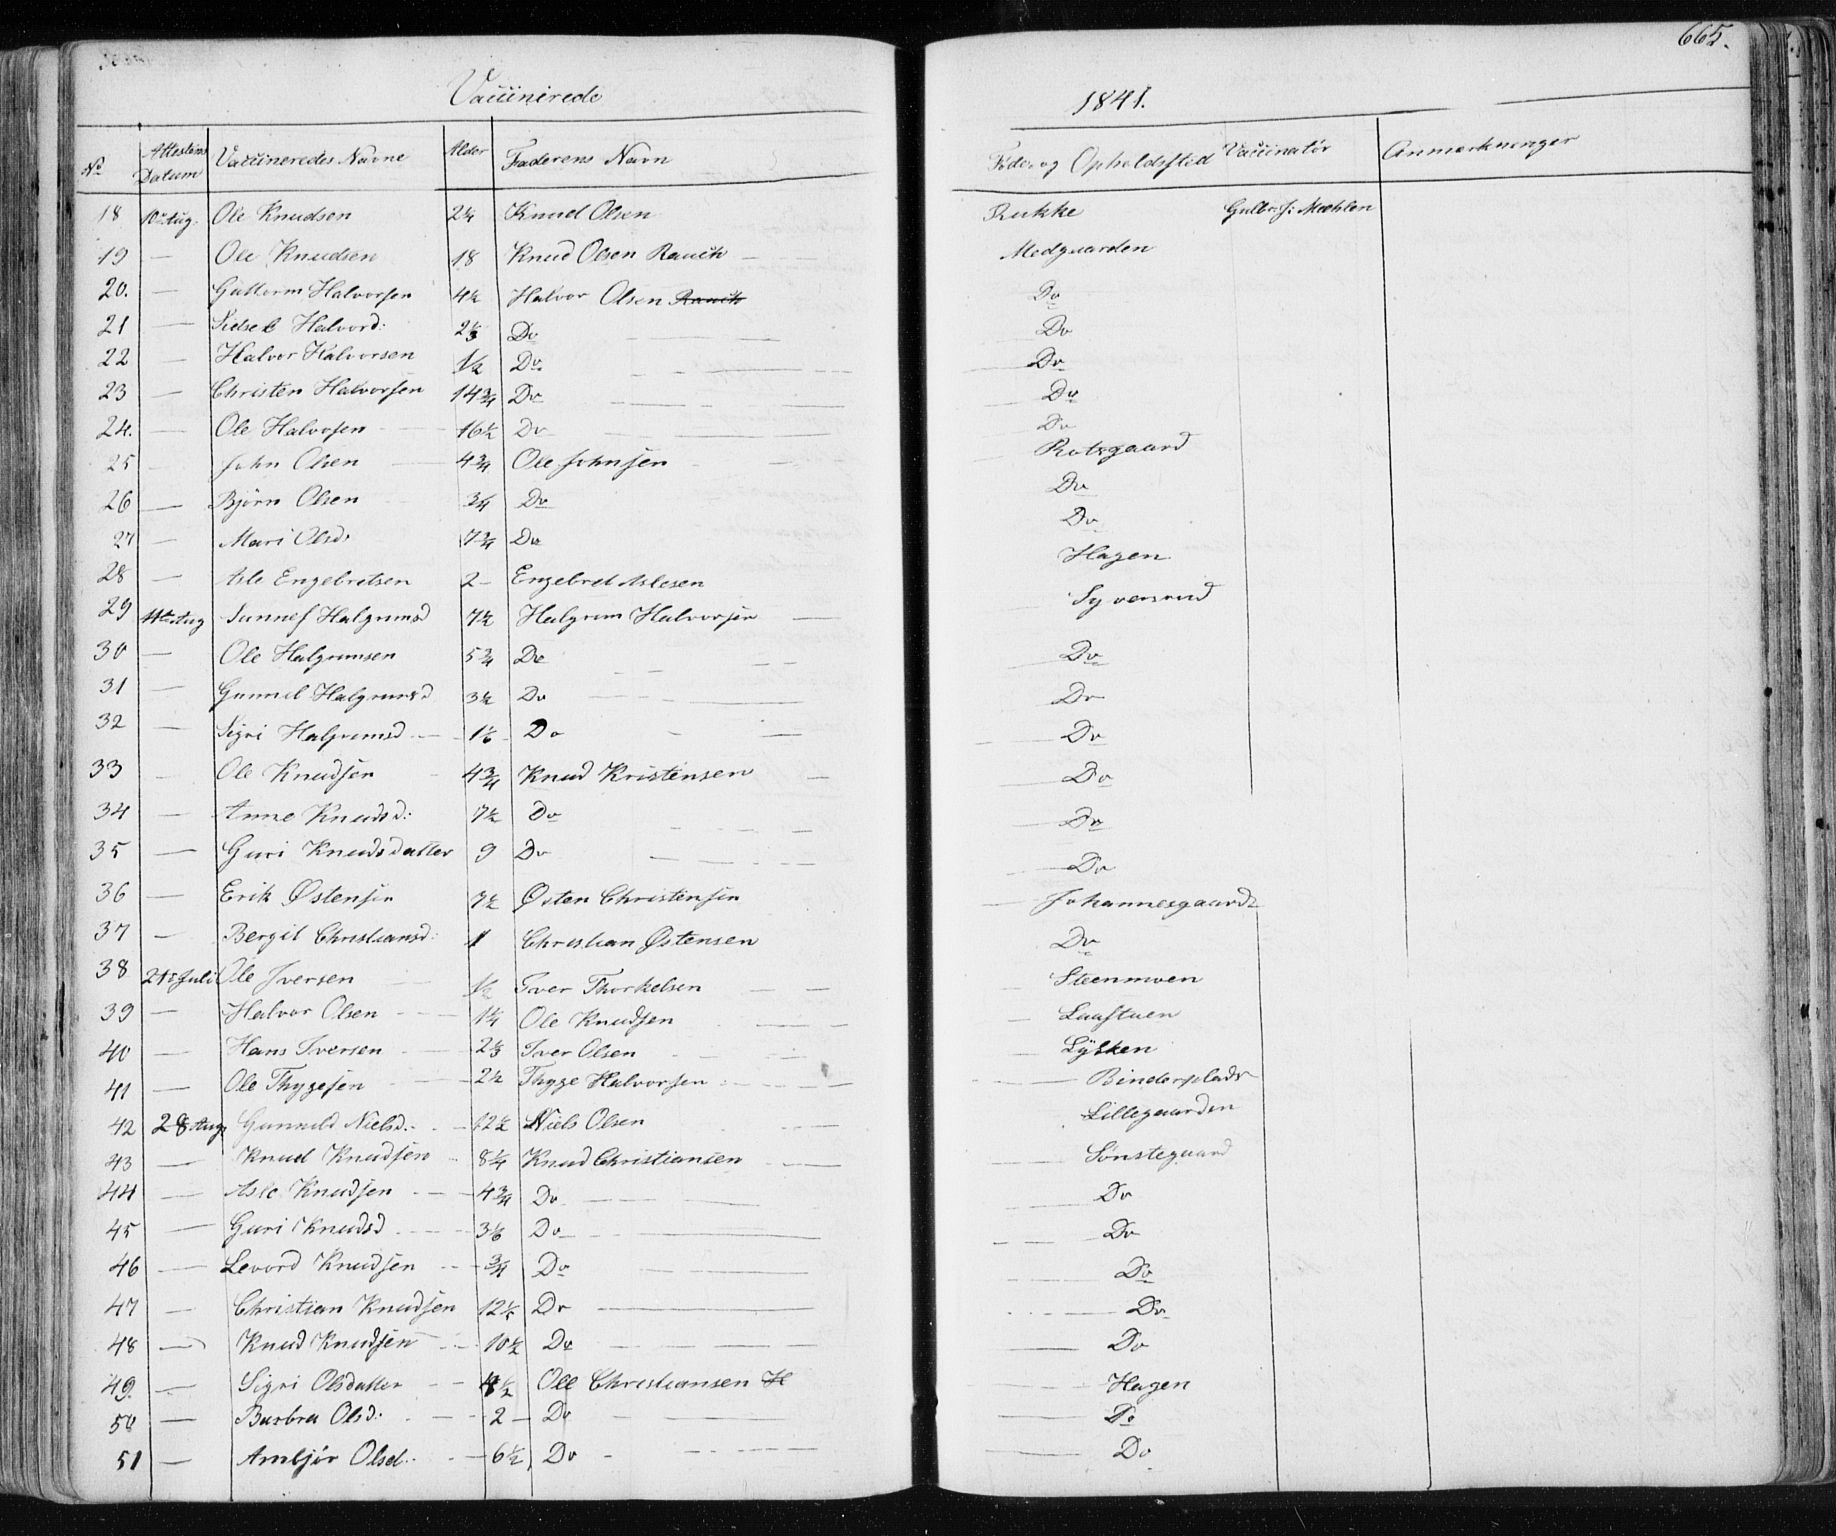 665.
Vaccinerede 1841.
No Attestens Datum Vaccineredes Navne Alder Faderens Navn Føde- og Opholdssted Vaccinatør Anmærkninger
18 10de Aug. Ole Knudsen 2¼ Knud Olsen Rukke Gulbr. J: Mæhlen
19 — Ole Knudsen 18 Knud Olsen — Medgaarden
20. — Guttorm Halvorsen 4½ Halvor Olsen Do
21 — Sidsel Halvord: 2⅓ Do Do
22 — Halvor Halvorsen ½ Do. Do
23 — Christen Halvorsen 14¾ Do Do
24. — Ole Halvorsen 16½ Do Do
25 — John Olsen 4¾ Ole Johnsen Rotsgaard
26 — Bjørn Olsen ¾ Do Do
27 — Mari Olsd: 7¾ Do Do
28 — Asle Engebretsen 2 — Engebret Aslesen Hagen
29 11te Aug Sunnef Halgrimsd 7½ Halgrim Halvorsen Syversrud
30 — Ole Halgrimsen 5¾ Do Do
31 — Gunnil Halgrimsd 3½ Do Do
32 — Sigri Halgrimsd 1⅙ Do Do
33 — Ole Knudsen 4¾ Knud Kristensen Do
34 — Anne Knudsd: 7½ Do Do
35 — Guri Knudsdatter 9 Do Do
36 — Erik Østensen 7½ Østen Christensen Johannesgaard
37 — Bergit Christiansd: 1 Christian Østensen Do
38 21de Juli Ole Iversen ½ Iver Thorkelsen Steenmoen
39 — Halvor Olsen 1¼ Ole Knudsen Laastuen
40 — Hans Iversen 2⅓ Iver Olsen Lÿkken
41 — Ole Thygesen 2½ Thyge Halvorsen Binderplads
42 28 Aug Gunnild Nielsd. 12½ Niels Olsen Lillegaarden
43 — Knud Knudsen 8¼ Knud Christiansen Sønstegaard
44 — Asle Knudsen 4¾ Do Do
45 — Guri Knudsd 3⅙ Do Do
46 — Levord Knudsen ¾ Do Do
47 — Christian Knudsen 12½ Do Do
48 — Knud Knudsen 10½ Do Do
49. — Sigri Olsdatter ½ Ole Christiansen Hagen
50 — Barbra Olsd: 2 — Do Do
51 — Ambjør Olsd. 6½ Do Do